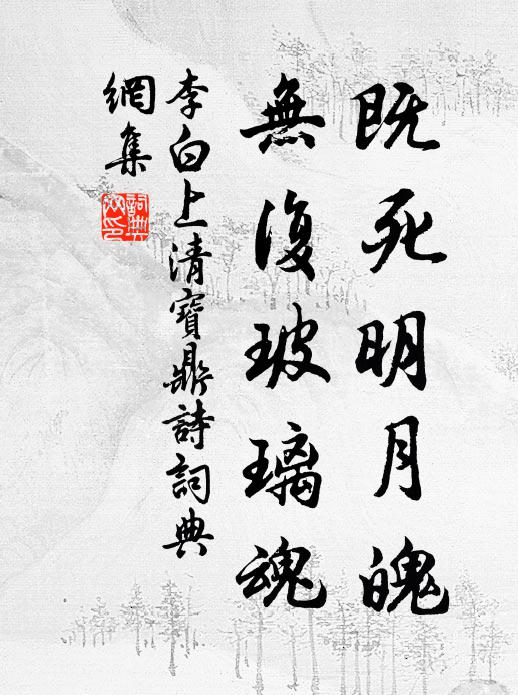 既死明月魄
無復玻璃魂
李白上清寶鼎詩詞典
網集
詞典網印